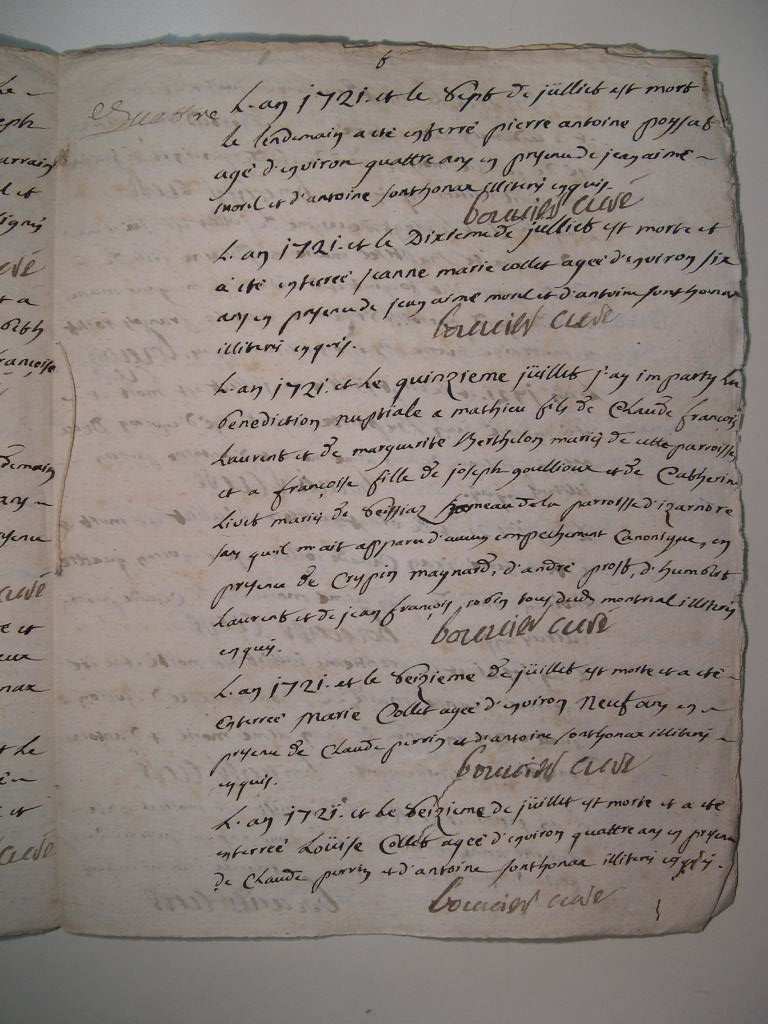 6
Quattre
L'an 1721. et le sept de jüilliet est mort
le lendemain a eté enterré pierre antoine poysat
agé d'environ quattre ans en presence de jean aimé
morel et d'antoine sonthonax illiterés enquis.
bouvier curé
L'an 1721. et le Dixieme de juilliet est morte et
a eté enterreé jeanne marie collet ageé d'environ six
ans en presence de jean aimé morel et d'antoine sonthonax
illiterés enquis.
bouvier curé
L'an 1721. et le quinzieme jüillet j'ay imparty la
benediction nuptiale a mathieu fils de Claude françois
Laurent et de marguerite Berthelon mariés de cette parroisse
et a françoise fille de joseph goullioux et de Catherine
Livet mariés de Veissiaz hameau de la parroisse d'izarnore
sans qu'il m'ait apparu d'aucun empechement Canonique, en
presence de Crespin maynard, d'andré prost, d'humbert
Laurent et de jean françois robin tous dudt montreal illiterés
enquis.
bouvier curé
L'an 1721. et le seizieme de jüillet est morte et a eté
Enterreé Marie Collet ageé d'environ Neuf ans en
presence de Claude perrin et d'antoine sonthonax illiterés
enquis.
bouvier curé
L'an 1721. et le seizieme de juillet est morte et a eté
enterreé Loüise Collet ageé d'environ quattre ans en presence
de Claude perrin et d'antoine sonthonax illiterés enquis.
bouvier curé